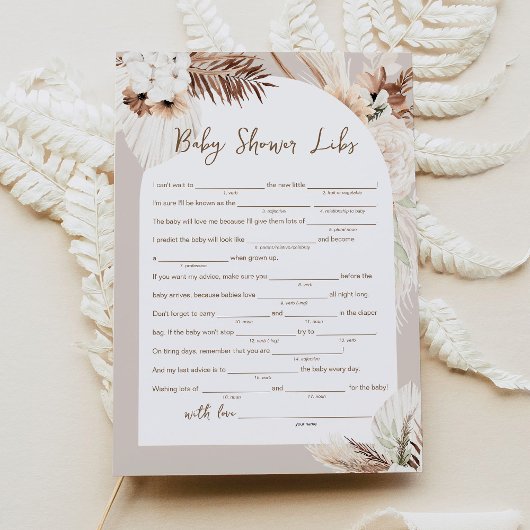 Baby Shower Libs
I can't wait to ____________ the new little ____________!
1. verb 2. fruit or vegetable
I'm sure I'll be known as the ____________ ____________
3. adjective 4. relationship to baby
The baby will love me because I'll give them lots of ____________
5. plural noun
I predict the baby will look like ____________ and become
6. parent/relative/celebrity
a ____________ when grown up.
7. profession
If you want my advice, make sure you ____________ before the
8. verb
baby arrives, because babies love ____________ all night long.
9. verb (-ing)
Don't forget to carry ____________ and ____________ in the diaper
10. noun 11. noun
bag. If the baby won't stop ____________ try to ____________
12. verb (-ing) 13. verb
On tiring days, remember that you are ____________!
14. adjective
And my last advice is to ____________ the baby every day.
15. verb
Wishing lots of ____________ and ____________ for the baby!
16. noun 17. noun
with love ____________
your name